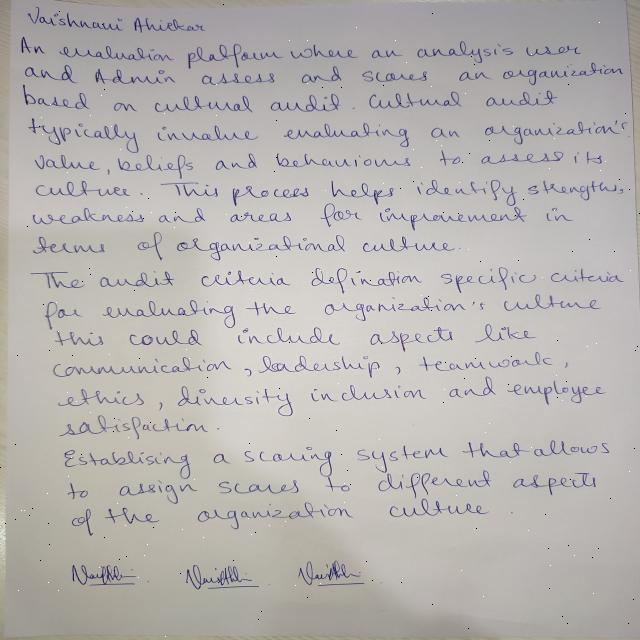 Vaishnavi Ahirkar
An evaluation platform where an analysis user
and Admin assess and scores an organization
based on cultural audit. Cultural audit
typically invalue evaluating an organization's
value, beliefs and behavioums to assess its
culture. This process helps identify strengths,
weakness and areas for improvement in
terms of organizational culture.
The audit criteria defination specific criteria
for evaluating the organization's culture
this could include aspects like
communication, leadership, teamwork,
ethics, diversity inclusion and employee
satisfaction.
Establising a scoring system that allows
to assign scores to different aspects
of the organization culture.